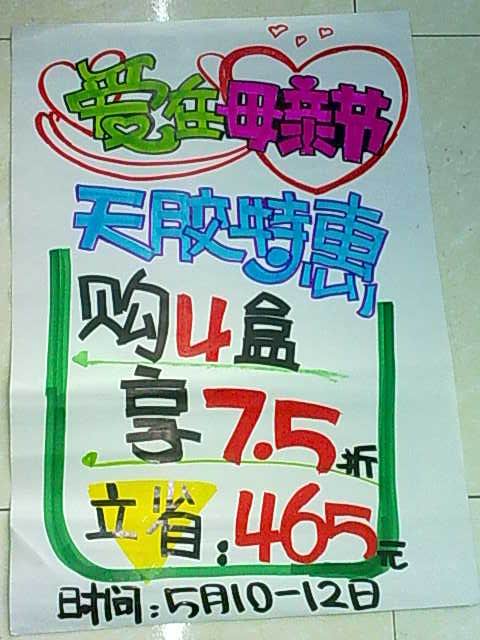 爱在母亲节
天胶特惠
购4盒
享7.5折
立省:465元
时间:5月10-12日